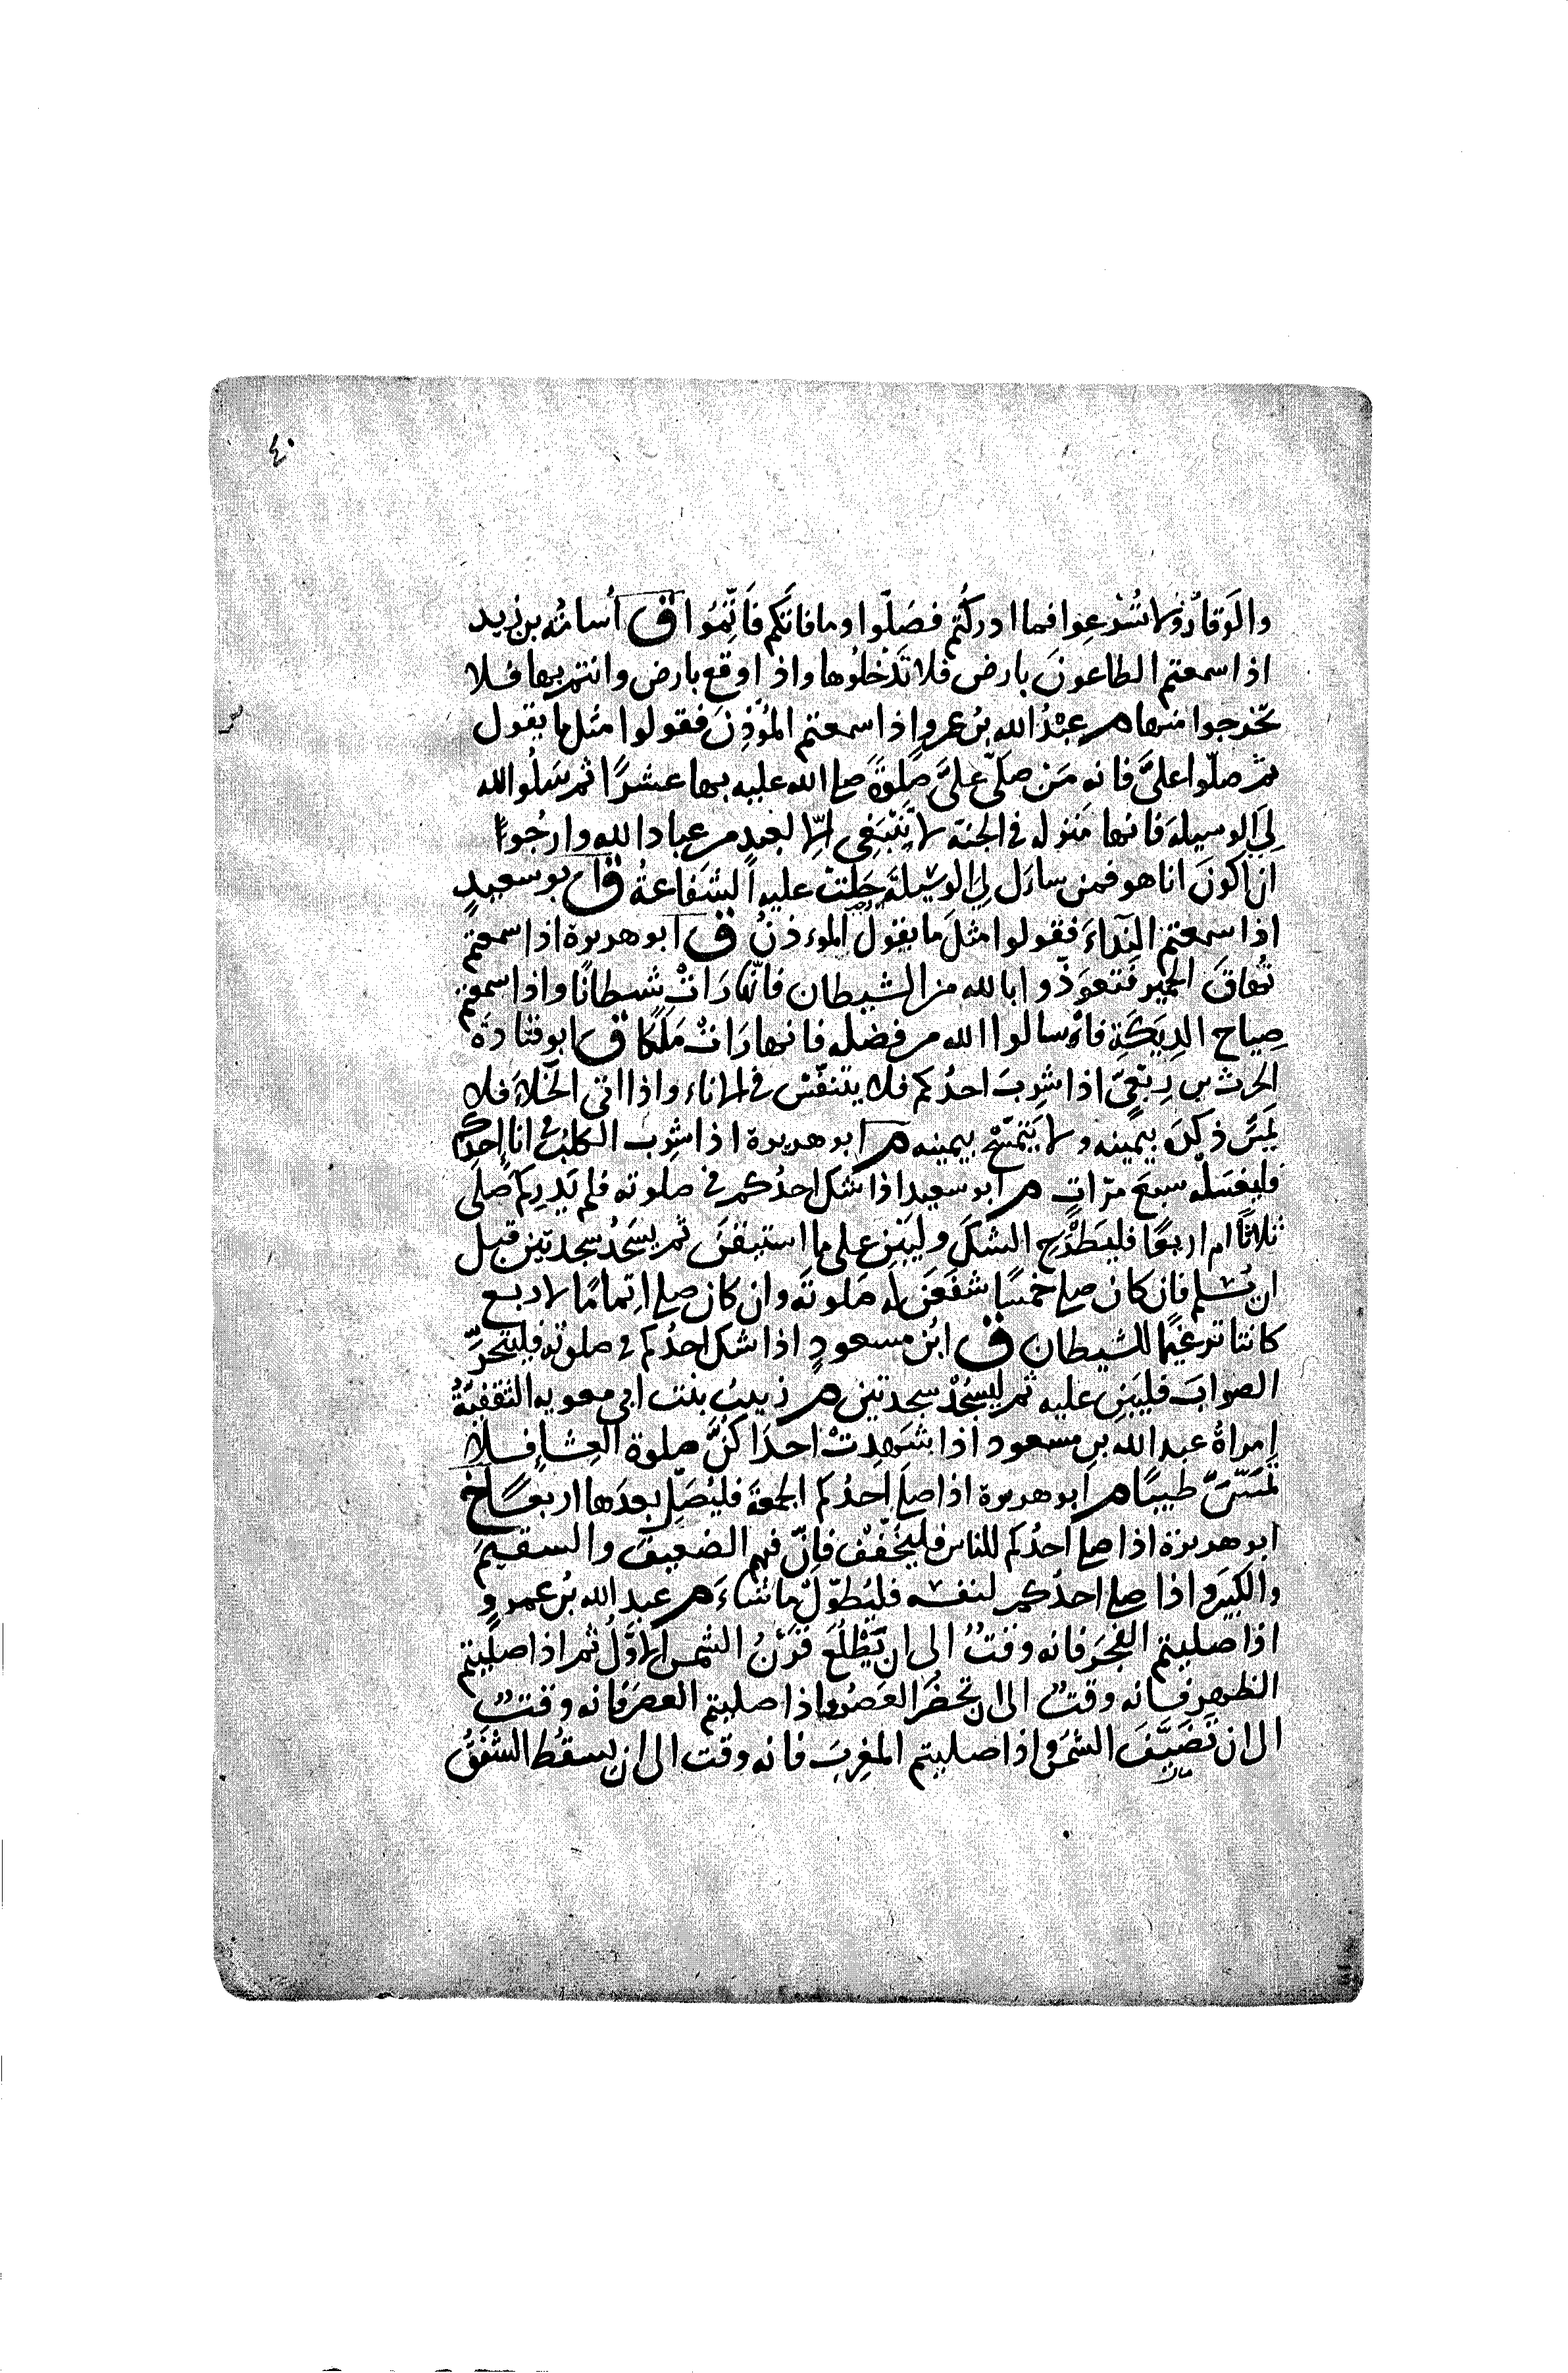 ٤٠
والوَقار ولا تُسْرعوا فما ادركتُم فصَلّوا وما فاتكم فَأَتِمّوا ق أسامةُ بن زيد
اذا سمعتم الطاعونَ بارض فلا تَدْخلُوها واذا وقع بارض وانتم بها فلا
تخرجوا منها م عبْدُ الله بنُ عمرٍو اذا سمعتم المُؤَذِنَ فقولوا مثل ما يقول
ثم صلّوا علىَّ فانه مَن صلّى علىَّ صَلوةً صلى الله عليه بها عشرًا ثم سَلُوا الله
لِىَ الوسيلة فانها منزله فى الجنة لا تَنْبَغى اِلّا لعبدٍ من عباد الله وارجُوا
ان اكونَ انا هو فمن سأل لِىَ الوسيلةَ حَلتْ عليه الشفاعةُ ق ابو سعيدٍ
اذا سمعتم النّداءَ فقولوا مثلَ ما يقولُ المؤذنُ ق ابو هريرة اذا سمعتم
نُهاقَ الحمير فتعوّذوا بالله من الشيطان فانّها رَاتْ شيطانًا واذا سمعتم
صِياح الدِيَكَةِ فاسالوا الله من فضله فانها رَاتْ مَلَكًا ق ابو قتادَة
الحرث بن رِبْعىّ اذا شرِبَ احدُكم فلا يتنفّسْ فى الاناء واذا اتى الخَلاءَ فلا
يَمَسَّ ذكرَه بيمينه ولا يَتَمَسّحْ بيمينه م ابو هريرة اذا شرِب الكلبُ فى اناءِ احدِكم
فليغسله سبعَ مرّاتٍ م ابو سعيد اذا شكّ احدُكم فى صلوته فلم يَدرِ كم صلّى
ثلاثًا ام اربعًا فليَطْرَحِ الشكَّ وليَبْنِ على ما استيقنَ ثم يسجُد سجدتين قبل
ان يُسَلم فان كان صلى خمسًا شفَعْنَ له صَلوتَه وان كان صلى اِتمامًا لاربع
كانتا ترغيمًا للشيطان ق ابنُ مسعودٍ اذا شك احدُكم فى صلوته فليتحرَّ
الصوابَ فليَبْنِ عليه ثم ليسجُدْ سجدتين م زينبُ بنت ابى معويه الثقفيّةُ
امراةُ عبد الله بن مسعود اذا شَهِدتْ احدَا كُنَّ صلوة العِشاءِ فلا
تَمَسَّنَّ طيبًا م ابو هريرة اذا صلى احدُكم الجمعةَ فليُصَلِّ بعدَها اربعًا خ
ابو هريرة اذا صلى احدُكم للناس فليُخَفّفْ فاِنّ فيهم الضعيفَ والسقيمَ
والكبيرَ واذا صلى احدُكم لنفسه فليُطوّل ما شاءَ م عبد الله بنُ عمرٍو
اذا صليتم الفجرَ فانه وقتٌ الى ان يَطْلُعَ قَرْنُ الشمس الاوّلُ ثم اذا صليتم
الظهر فانه وقتٌ الى ان تحضُرَ العَصرُ واذا صليتم العصرَ فانه وقتٌ
الى ان تَضَيَّفَ الشمسُ واذا صليتم المغربَ فانه وقت الى ان يسقُط الشفَقُ